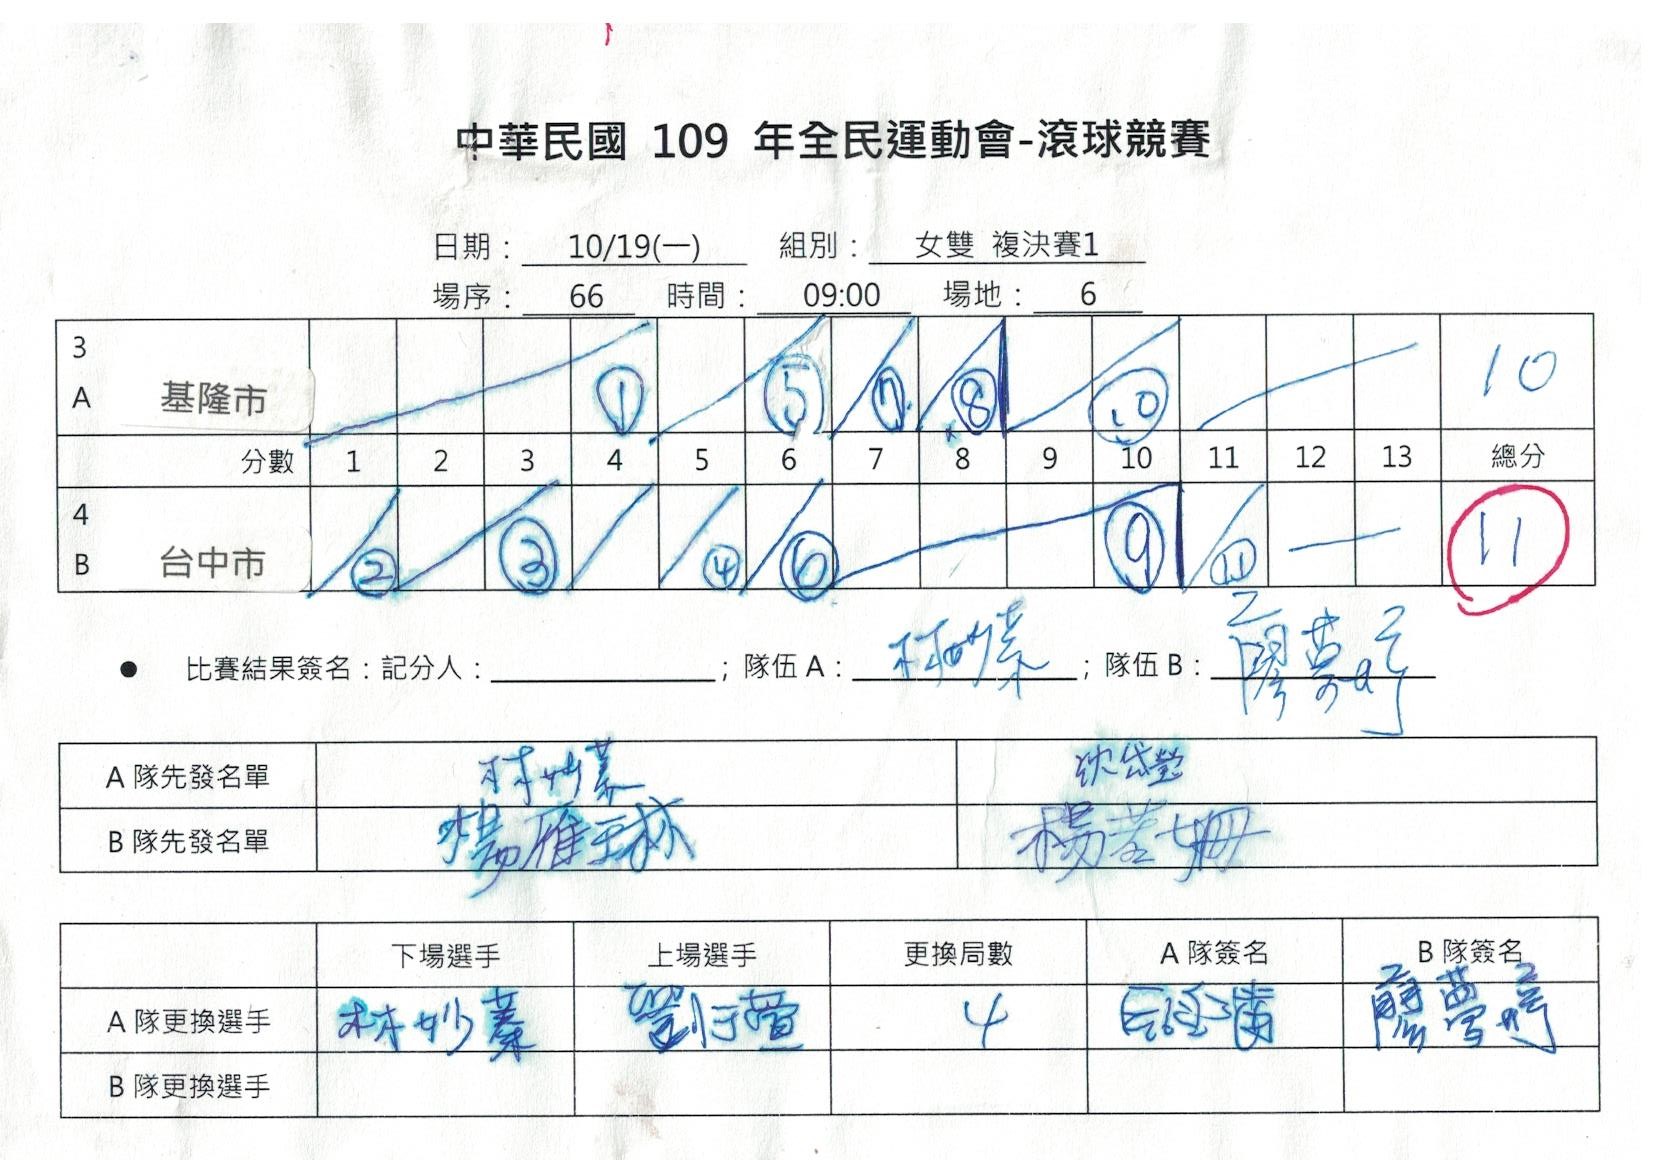 中華民國 109 年全民運動會-滾球競賽
日期： 10/19(一) 組別： 女雙 複決賽1
場序： 66 時間： 09:00 場地： 6
3
A 基隆市 ① ⑤ ⑦ ⑧ ⑩ 10
分數 1 2 3 4 5 6 7 8 9 10 11 12 13 總分
4
B 台中市 ② ③ ④ ⑥ ⑨ ⑪ 11
● 比賽結果簽名：記分人： ；隊伍 A： 林妙蓁 ；隊伍 B：
A 隊先發名單 林妙蓁
B 隊先發名單 楊雁琳
下場選手 上場選手 更換局數 A 隊簽名 B 隊簽名
A 隊更換選手 林妙蓁 4
B 隊更換選手